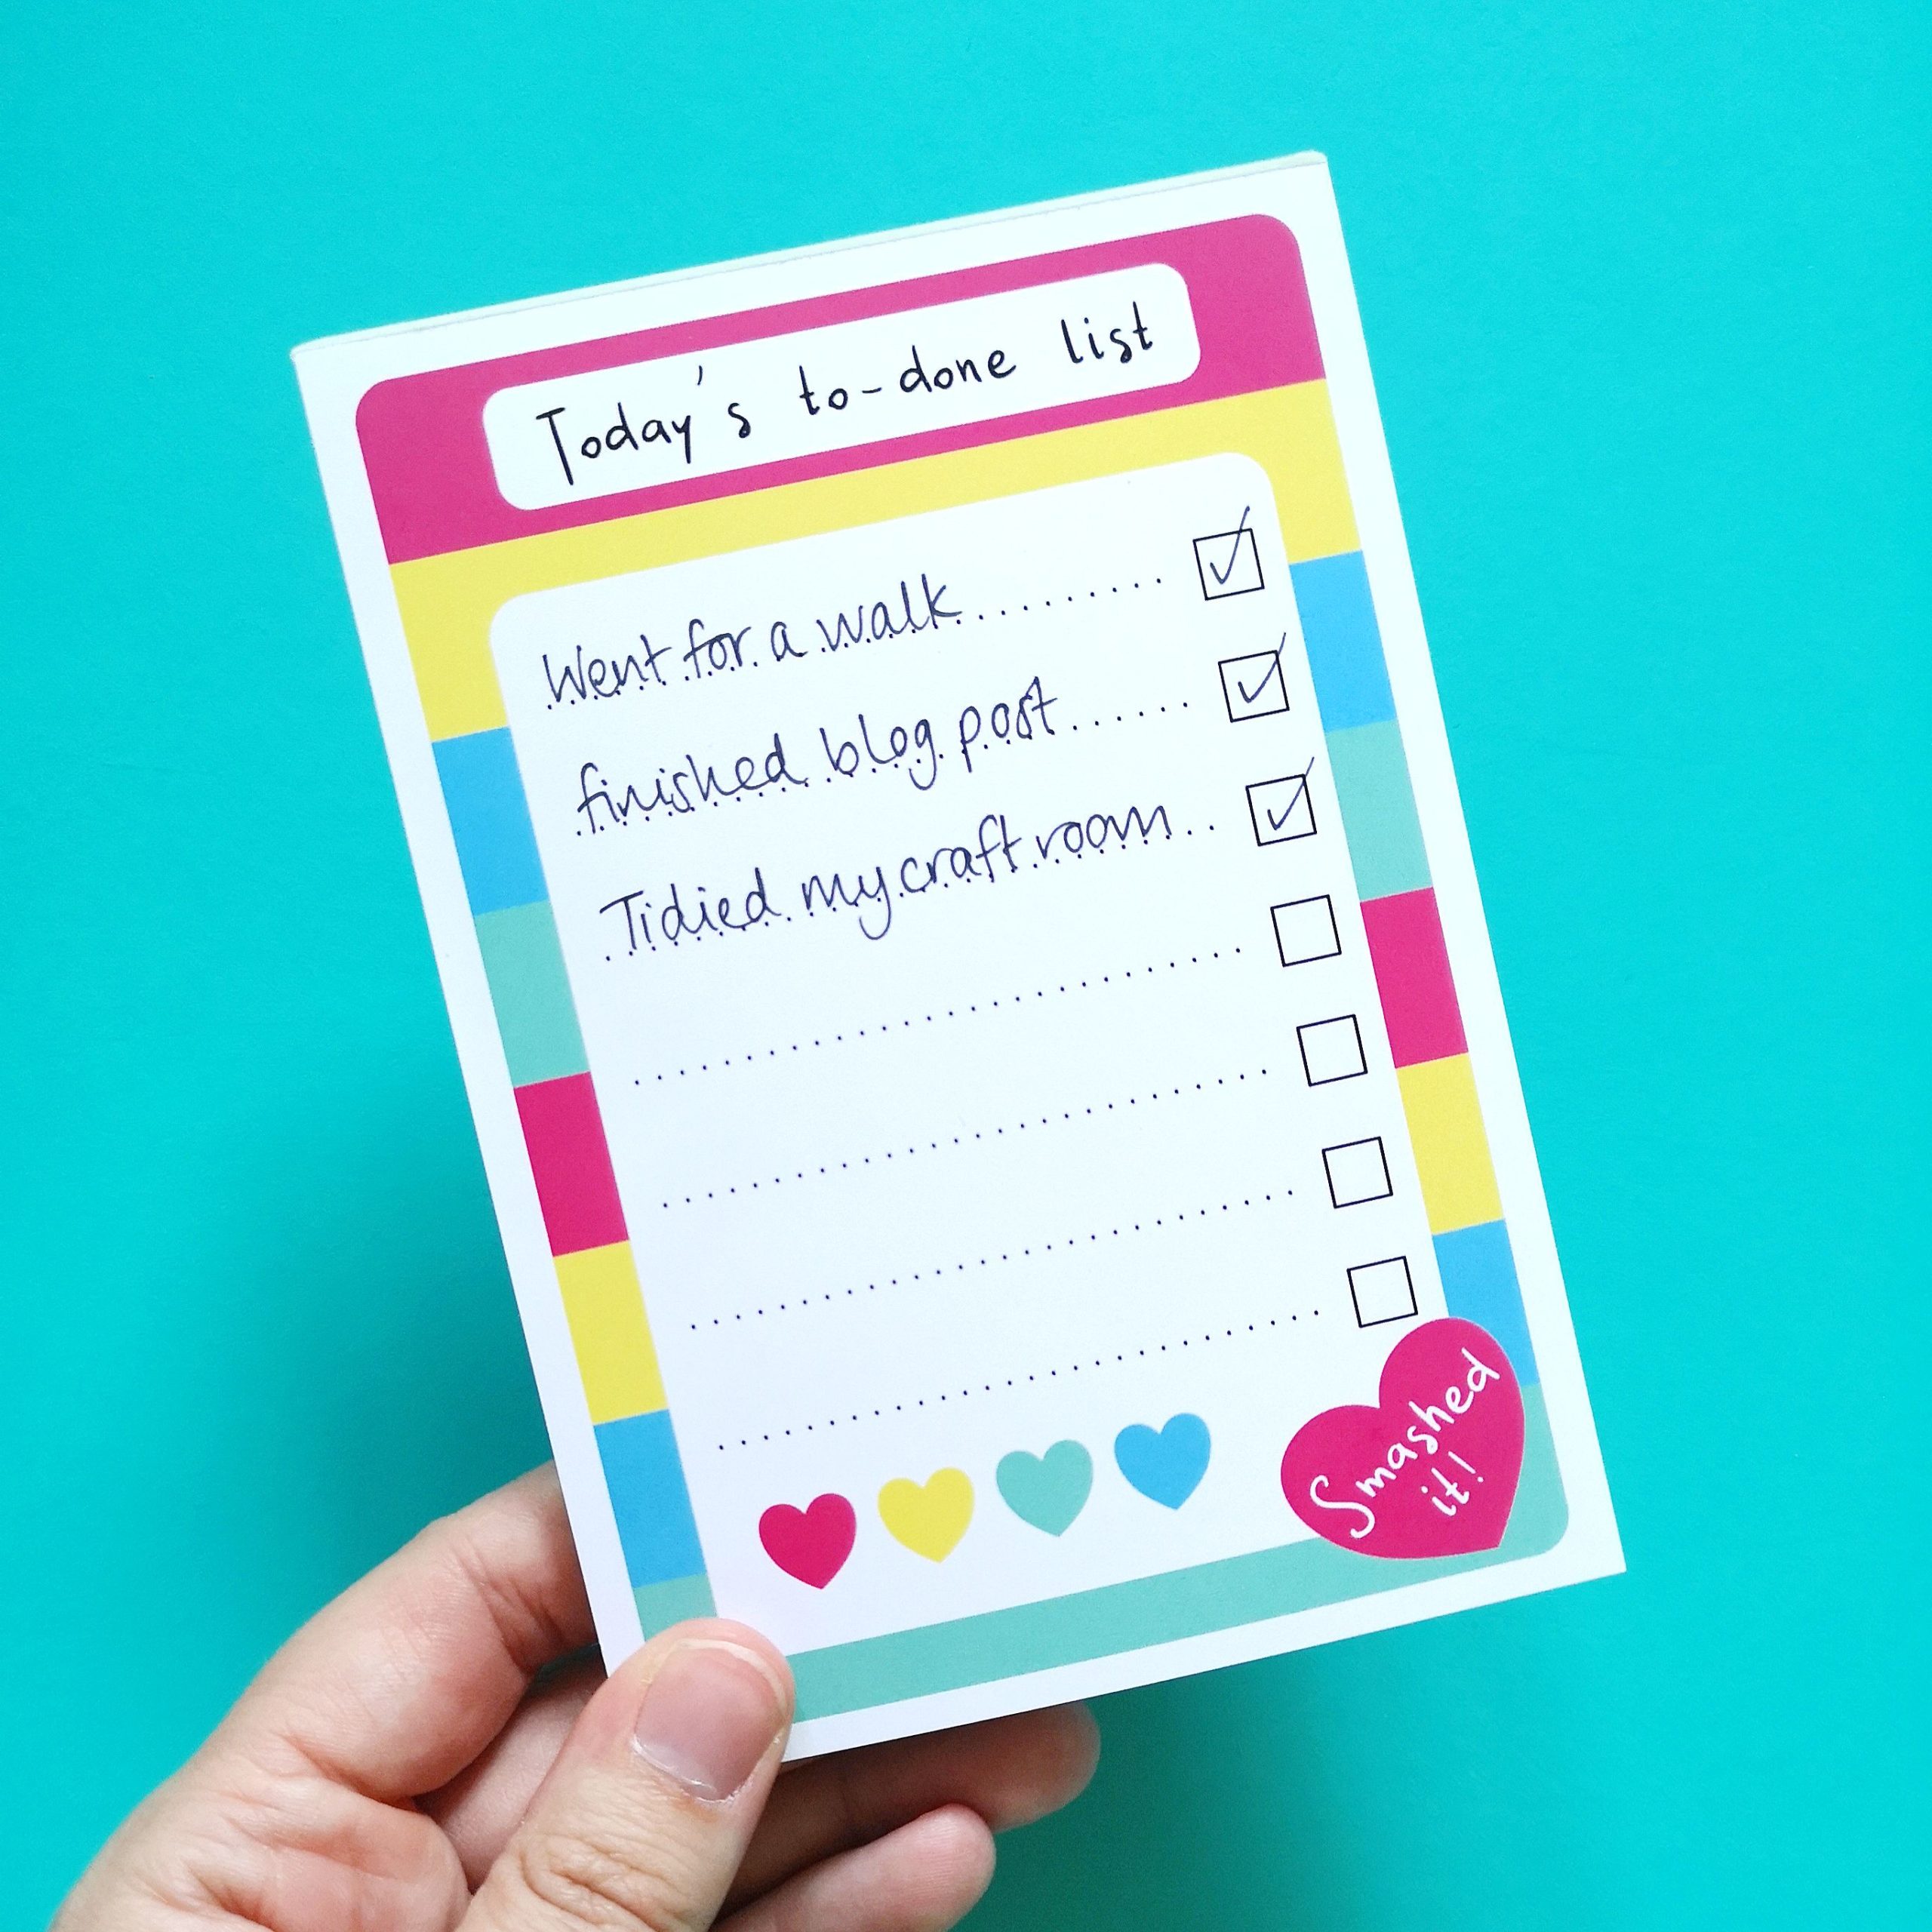 Today's to-done list
Went for a walk
finished blog post
Tidied my craft room
Smashed
it!